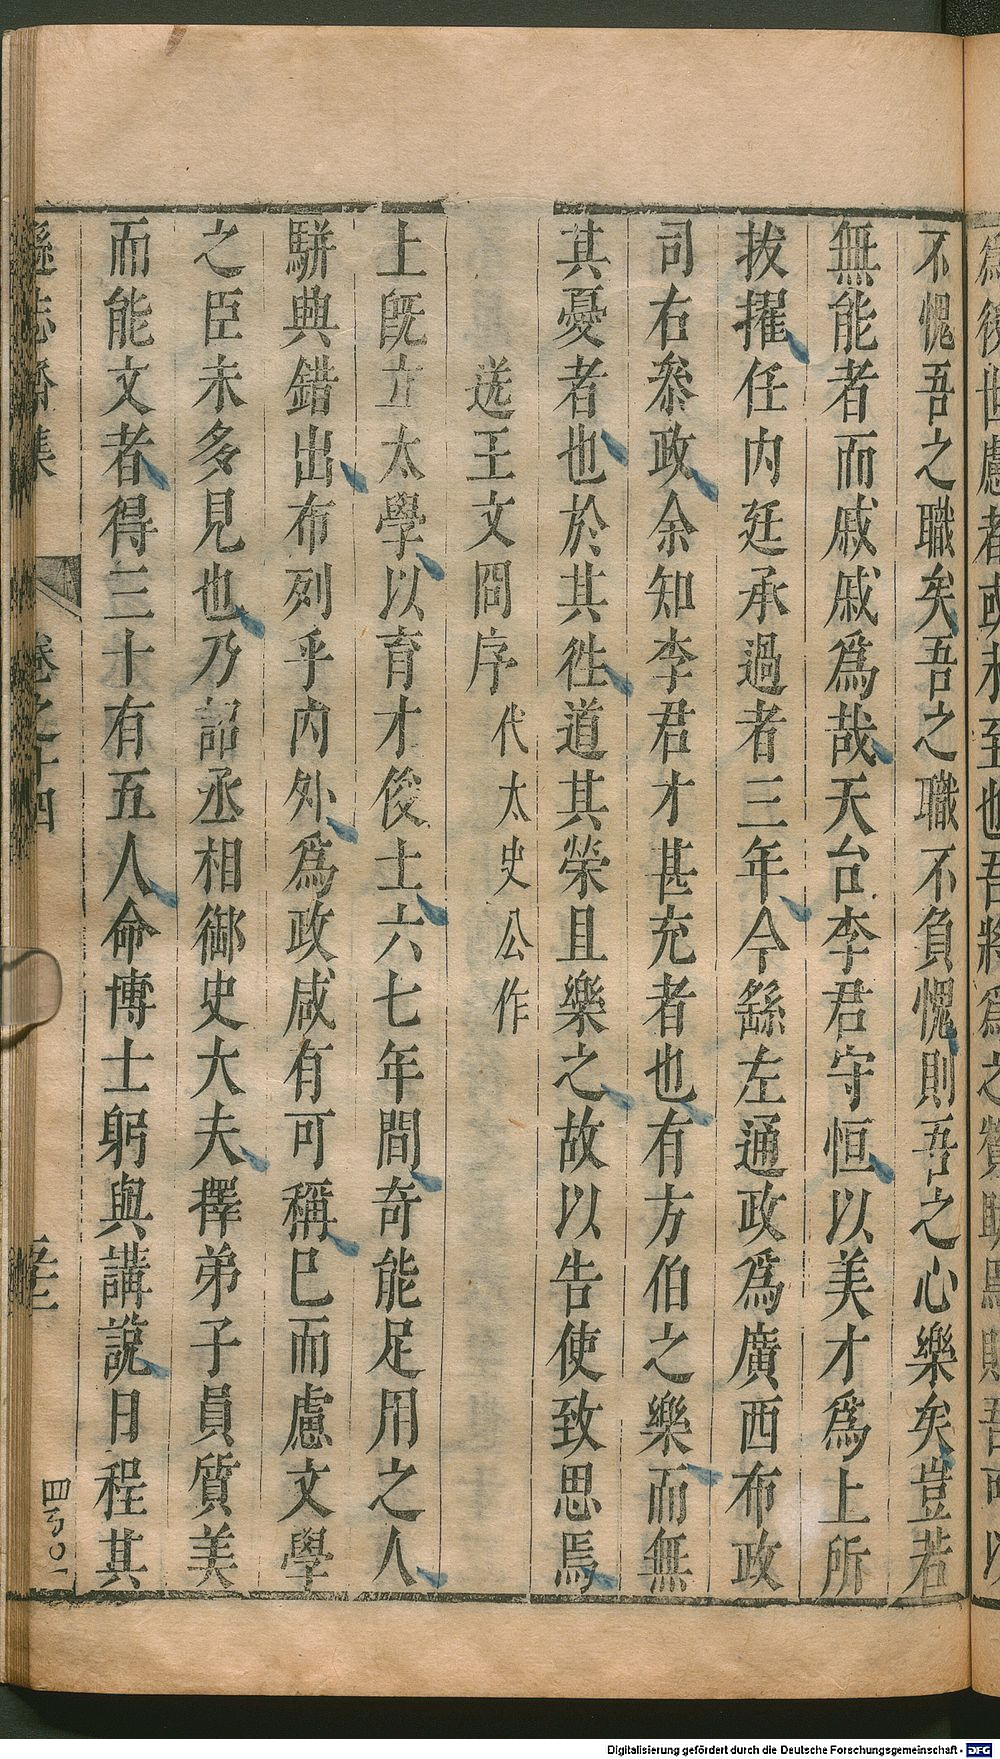 爲後世慮者或未至也吾將爲之贊
不愧吾之職矣吾之職不負愧則吾之心樂矣豈若
無能者而戚戚爲哉天台李君守恒以美才爲上所
拔擢任内廷承過者三年今繇左通政爲廣西布政
司右叅政余知李君才甚充者也有方伯之樂而無
其憂者也於其徃道其榮且樂之故以告使致思焉
送王文冏序 代太史公作
上旣立太學以育才俊士六七年間奇能足用之人
駢興錯出布列乎内外爲政咸有可稱巳而慮文學
之臣未多見也乃詔丞相御史大夫擇弟子員質美
而能文者得三十有五人命博士躬與講說日程其
遜志齋集 卷之十四
Digitalisierung gefördert durch die Deutsche Forschungsgemeinschaft - DFG